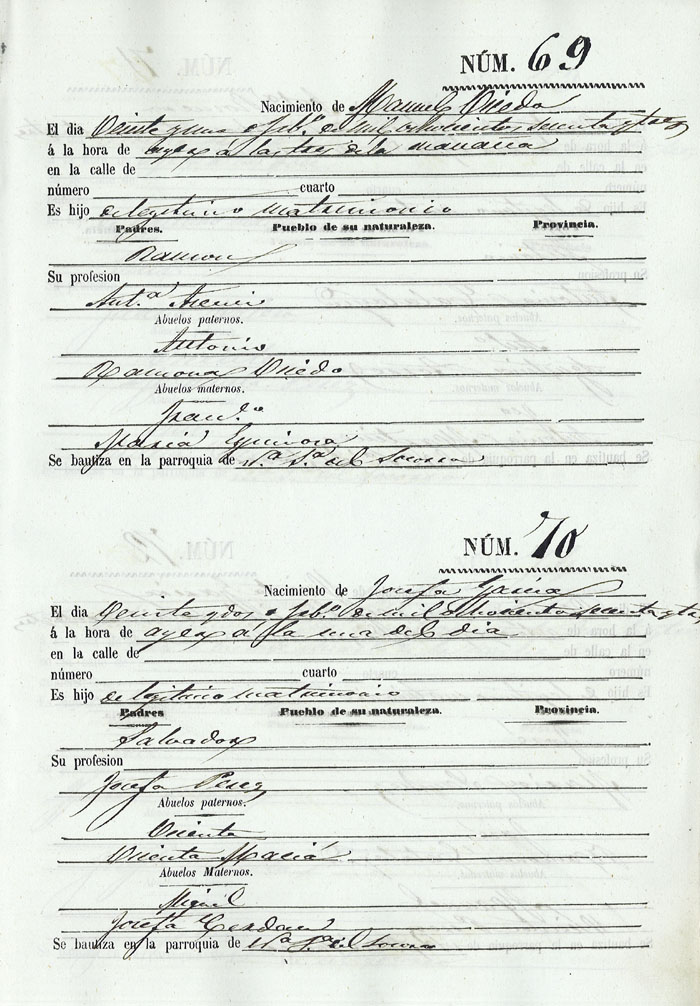 NÚM. 69
Nacimiento de Manuel Oviedo
El dia Veinte y uno Feb.º de mil ochocientos setenta y tres
á la hora de ayer á las tres de la mañana
en la calle de
número cuarto
Es hijo de legitimo matrimonio
Padres. Pueblo de su naturaleza. Provincia.
Ramon
Su profesion
Ant.ª
Abuelos paternos.
Antonio
Ramona Oviedo
Abuelos maternos.
Fran.co
Maria Espinosa
Se bautiza en la parroquia de N.ª S.ª del Socorro
NÚM. 70
Nacimiento de Josefa Garcia
El dia Veinte y dos Feb.º de mil ochocientos setenta y tres
á la hora de ayer á la una del dia
en la calle de
número cuarto
Es hijo de legitimo matrimonio
Padres Pueblo de su naturaleza. Provincia.
Salvador
Su profesion
Josefa Perez
Abuelos paternos.
Vicente
Vicenta Maciá
Abuelos Maternos.
Miguel
Josefa Cerdan
Se bautiza en la parroquia de N.ª S.ª del Socorro